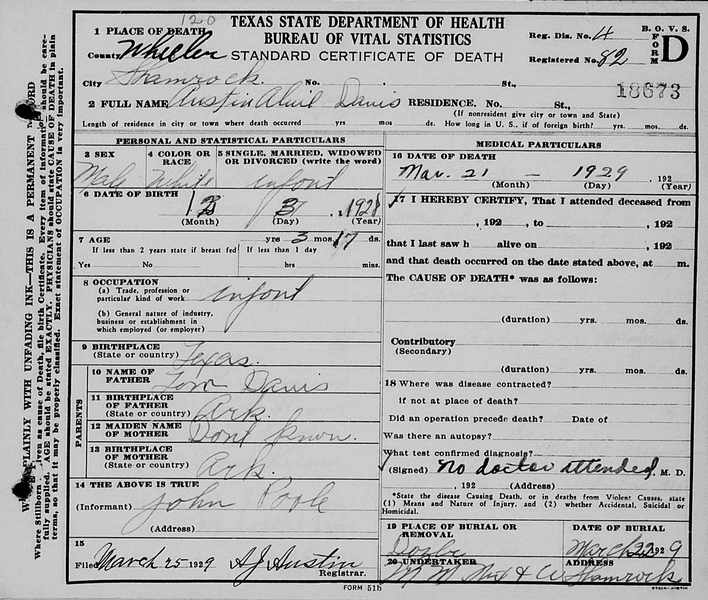 120
TEXAS STATE DEPARTMENT OF HEALTH
BUREAU OF VITAL STATISTICS
STANDARD CERTIFICATE OF DEATH
Reg. Dis. No. 4
Registered No. 82
B. O. V. S.
FORM D
18673
1 PLACE OF DEATH
County Wheeler
City Shamrock No. St.,
2 FULL NAME Austin Davis RESIDENCE. No. St.,
(If nonresident give city or town and State)
Length of residence in city or town where death occurred yrs mos. ds. How long in U. S., if of foreign birth? yrs. mos. ds.
PERSONAL AND STATISTICAL PARTICULARS
3 SEX
Male
4 COLOR OR RACE
White
5 SINGLE, MARRIED, WIDOWED OR DIVORCED (write the word)
infant
6 DATE OF BIRTH
12 3, 1928
(Month) (Day) (Year)
7 AGE
yrs 3 mos. 17 ds.
If less than 2 years state if breast fed If less than 1 day
Yes No hrs mins.
8 OCCUPATION
(a) Trade, profession or particular kind of work infant
(b) General nature of industry, business or establishment in which employed (or employer)
9 BIRTHPLACE
(State or country) Texas.
PARENTS
10 NAME OF FATHER Tom Davis
11 BIRTHPLACE OF FATHER (State or country) Ark.
12 MAIDEN NAME OF MOTHER Dont Know.
13 BIRTHPLACE OF MOTHER (State or country) Ark.
14 THE ABOVE IS TRUE
(Informant) John Poole
(Address)
15
Filed March 25 1929 A J Austin
Registrar.
MEDICAL PARTICULARS
16 DATE OF DEATH
Mar. 21 — 1929, 192
(Month) (Day) (Year)
17 I HEREBY CERTIFY, That I attended deceased from
, 192 , to , 192
that I last saw h alive on , 192
and that death occurred on the date stated above, at m.
The CAUSE OF DEATH* was as follows:
(duration) yrs. mos. ds.
Contributory
(Secondary)
(duration) yrs. mos. ds.
18 Where was disease contracted?
If not at place of death?
Did an operation precede death? Date of
Was there an autopsy?
What test confirmed diagnosis?
(Signed) no doctor attended, M. D.
, 192 (Address)
*State the disease Causing Death, or in deaths from Violent Causes, state (1) Means and Nature of Injury, and (2) whether Accidental, Suicidal or Homicidal.
19 PLACE OF BURIAL OR REMOVAL
DATE OF BURIAL
March 22 1929
20 UNDERTAKER
ADDRESS
Shamrock
FORM 51b
PLAINLY WITH UNFADING INK—THIS IS A PERMANENT RECORD
Where Stillborn given as cause of Death, file birth Certificate. Every item of information should be carefully supplied. AGE should be stated EXACTLY. PHYSICIANS should state CAUSE OF DEATH in plain terms, so that it may be properly classified. Exact statement of OCCUPATION is very important.